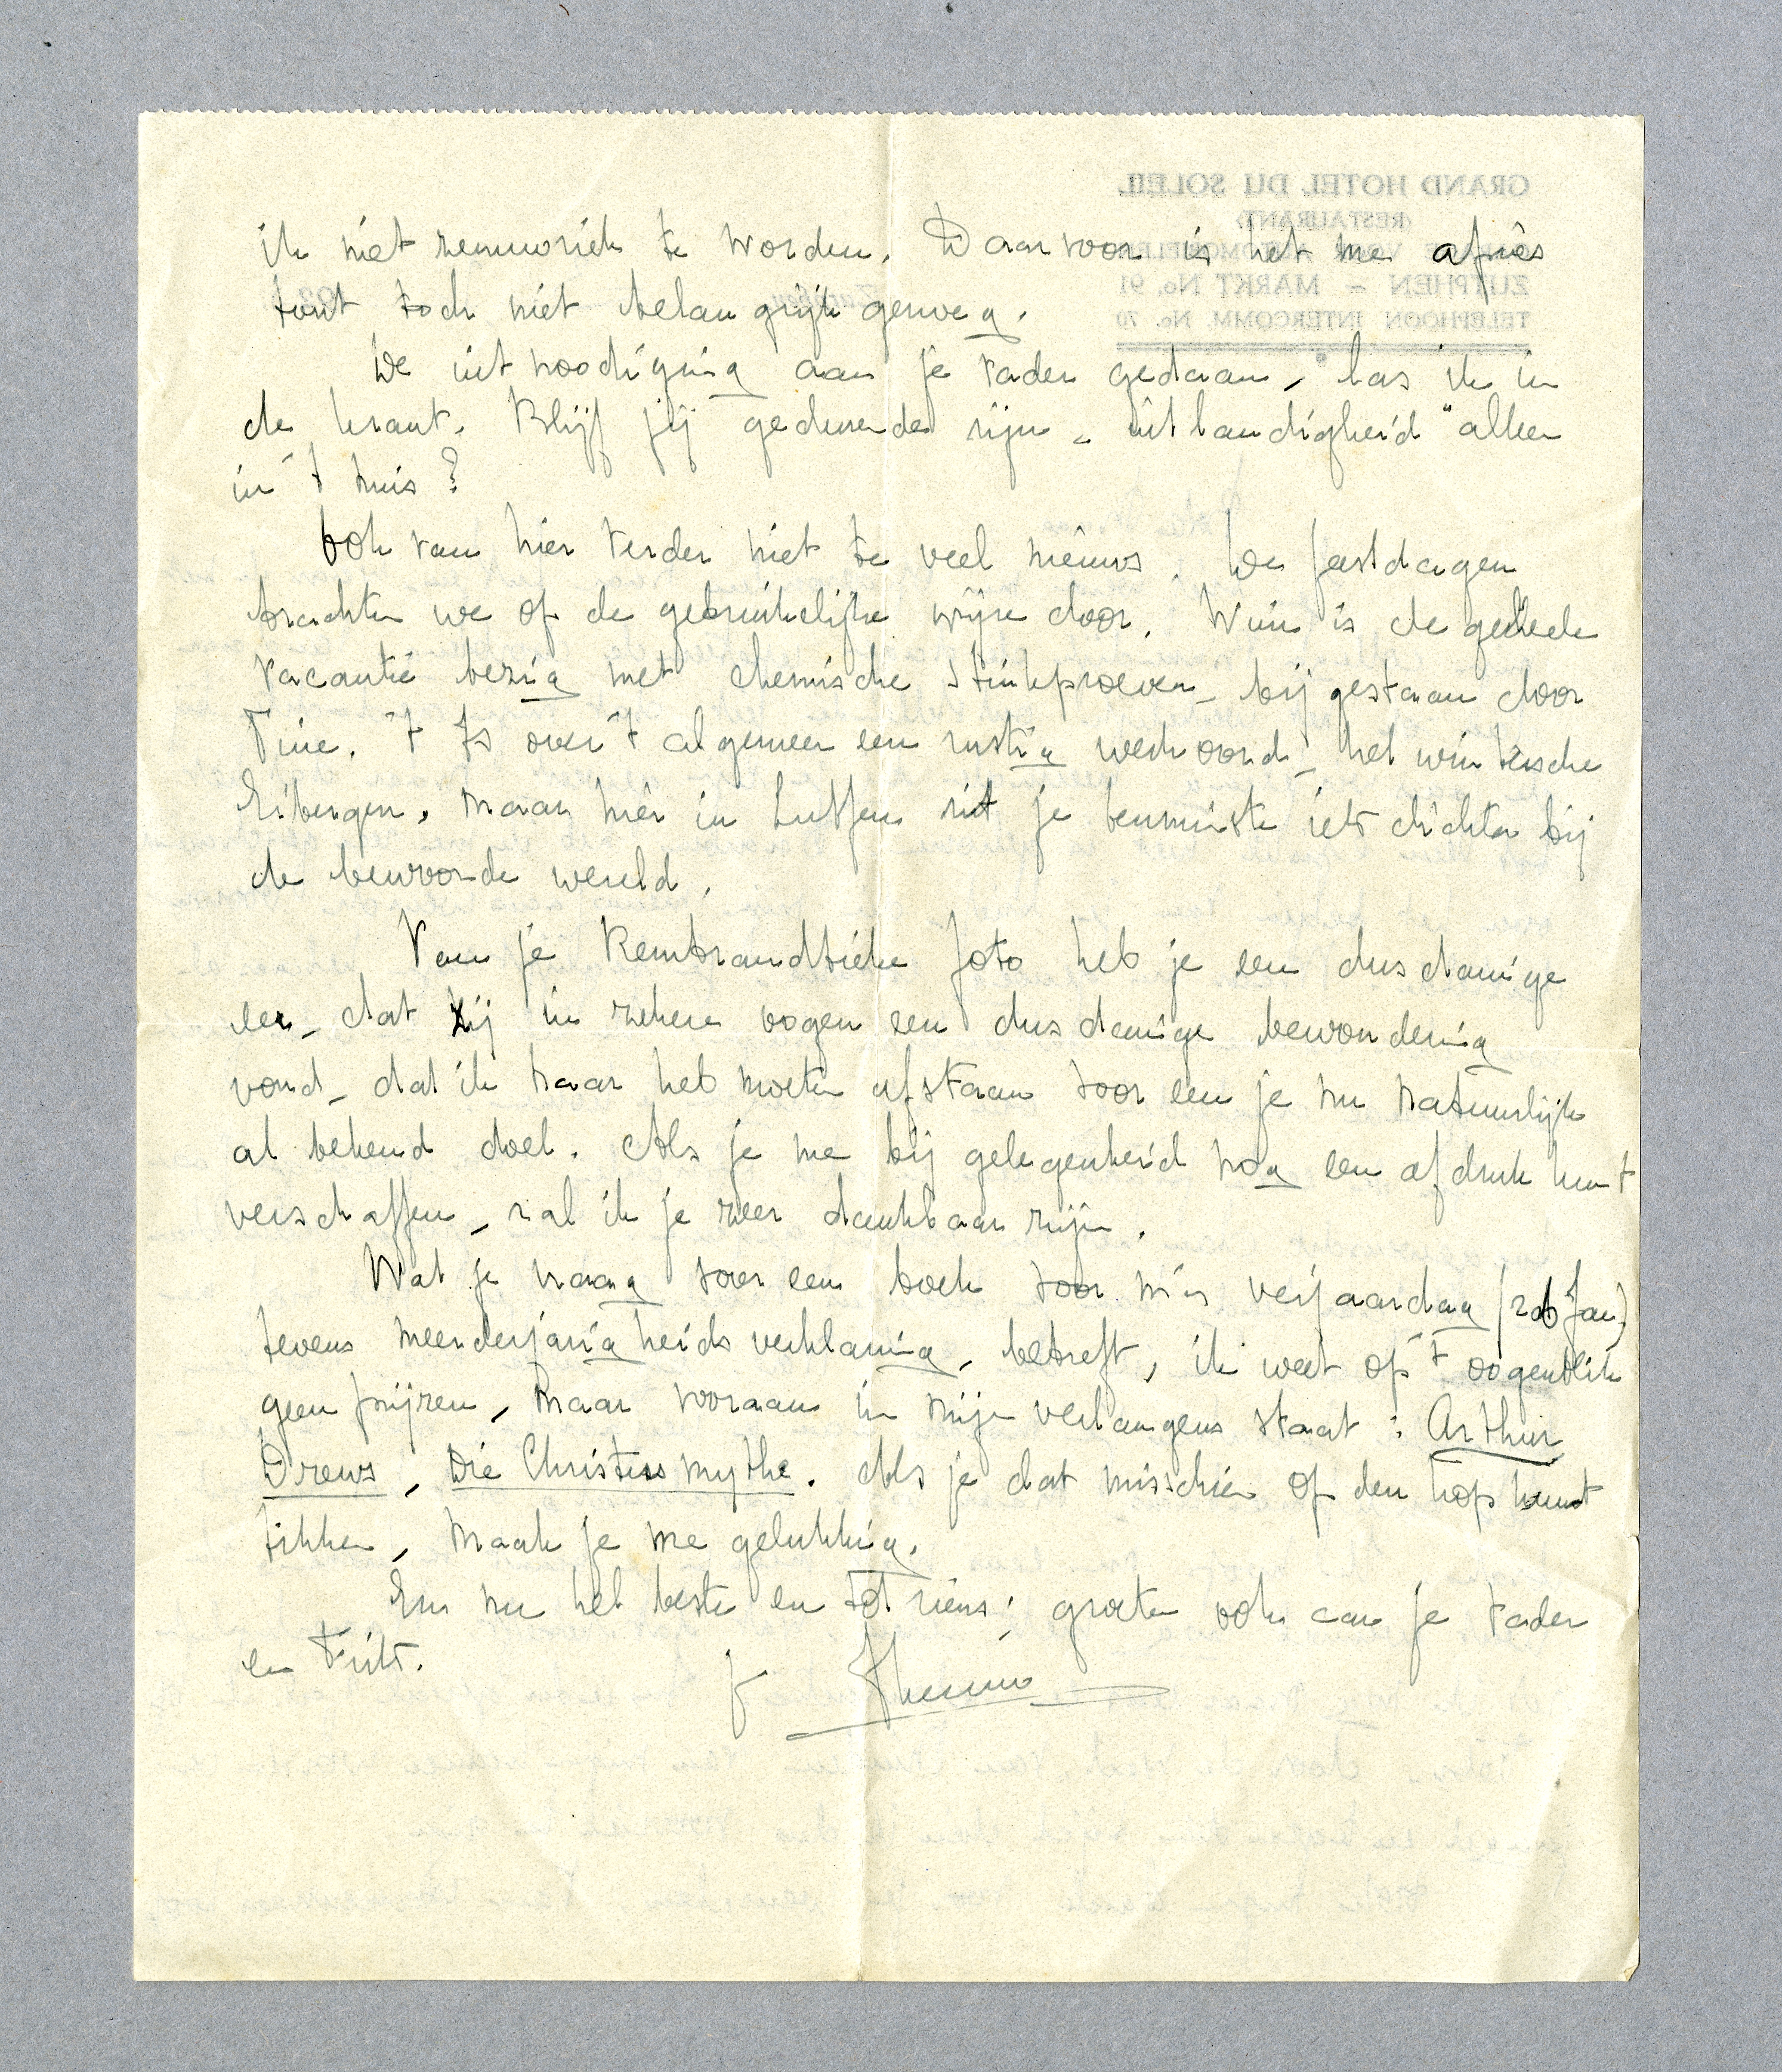 ik niet zenuwziek te worden. Daarvoor is het me après
tout toch niet belangrijk genoeg.
De uitnoodiging aan je vader gedaan, las ik in
de krant. Blijf jij gedurende zijn „uitlandigheid" alleen
in 't huis?
Ook van hier verder niet te veel nieuws. De feestdagen
brachten we op de gebruikelijke wijze door. Wim is de geheele
vacantie bezig met chemische stinkproeven, bijgestaan door
Tine. 't Is over 't algemeen een rustig werkoord, het wintersche
Eibergen. Maar hier in Zutfen zit je tenminste iets dichter bij
de bewoonde wereld.
Van je Rembrandtieke foto heb je een dusdanige
eer, dat zij in zekere oogen een dusdanige bewondering
vond, dat ik haar heb moeten afstaan voor een je nu natuurlijk
al bekend doel. Als je me bij gelegenheid nog een afdruk kunt
verschaffen, zal ik je zeer dankbaar zijn.
Wat je vraag voor een boek voor m'n verjaardag (26 Jan.)
tevens meerderjarigheidsverklaring, betreft, ik weet op 't oogenblik
geen prijzen, maar vooraan in mijn verlangens staat: Arthur
Drews, Die Christusmythe. Als je dat misschien op den kop kunt
tikken, maak je me gelukkig.
En nu het beste en tot ziens; groeten ook aan je vader
en Frits.
GRAND HOTEL DU SOLEIL
(RESTAURANT)
ZUTPHEN – MARKT No. 91
TELEPHOON INTERCOMM. No. 70